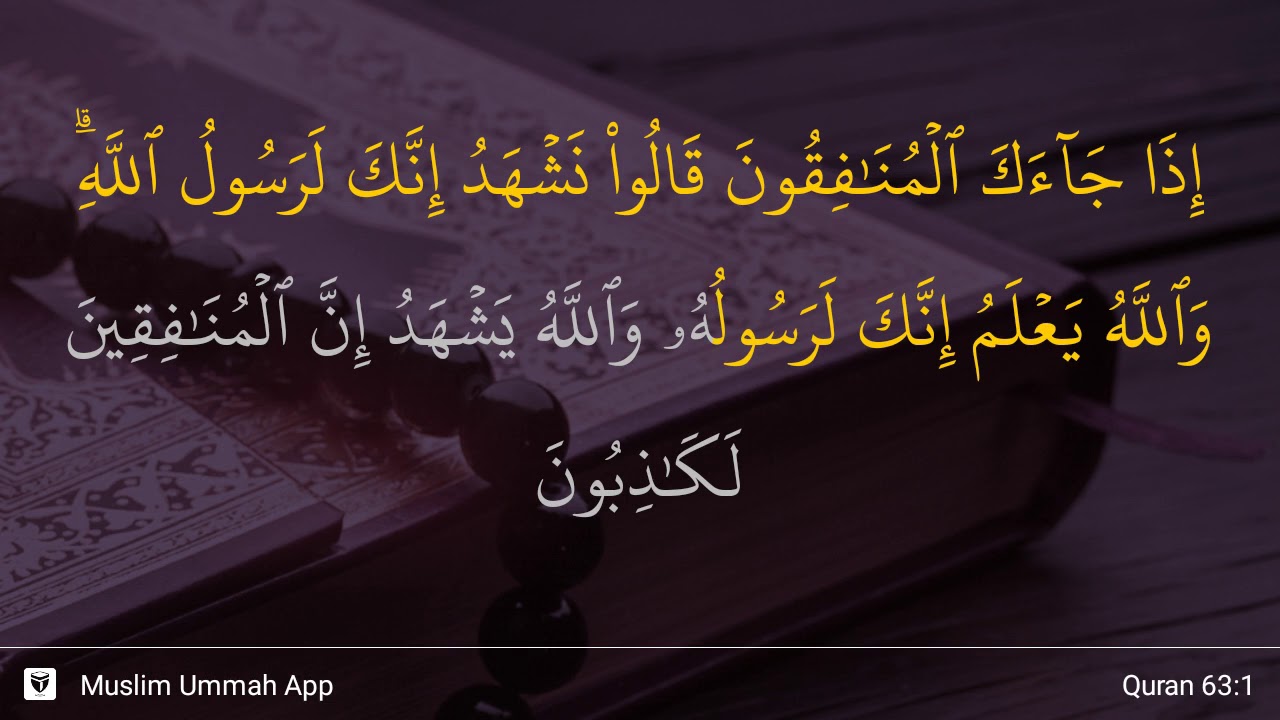 إِذَا جَآءَكَ ٱلْمُنَـٰفِقُونَ قَالُوا۟ نَشْهَدُ إِنَّكَ لَرَسُولُ ٱللَّهِ ۗ
وَٱللَّهُ يَعْلَمُ إِنَّكَ لَرَسُولُهُۥ وَٱللَّهُ يَشْهَدُ إِنَّ ٱلْمُنَـٰفِقِينَ
لَكَـٰذِبُونَ
Muslim Ummah App
Quran 63:1